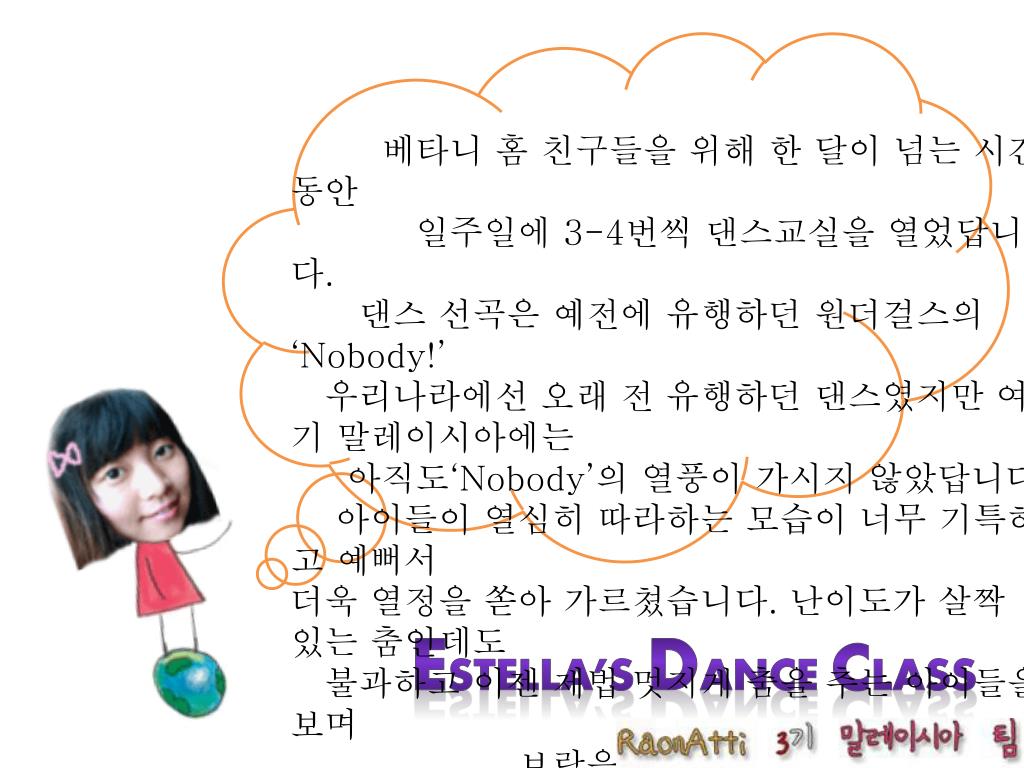 베타니 홈 친구들을 위해 한 달이 넘는 시간
동안
일주일에 3-4번씩 댄스교실을 열었답니
다.
댄스 선곡은 예전에 유행하던 원더걸스의
‘Nobody!’
우리나라에선 오래 전 유행하던 댄스였지만 여
기 말레이시아에는
아직도‘Nobody’의 열풍이 가시지 않았답니다
아이들이 열심히 따라하는 모습이 너무 기특하
고 예뻐서
더욱 열정을 쏟아 가르쳤습니다. 난이도가 살짝
있는 춤인데도
불과하고 이젠 제법 멋지게 춤을 추는 아이들을
보며
보람은
ESTELLA’S DANCE CLASS
RaonAtti 3기 말레이시아 팀